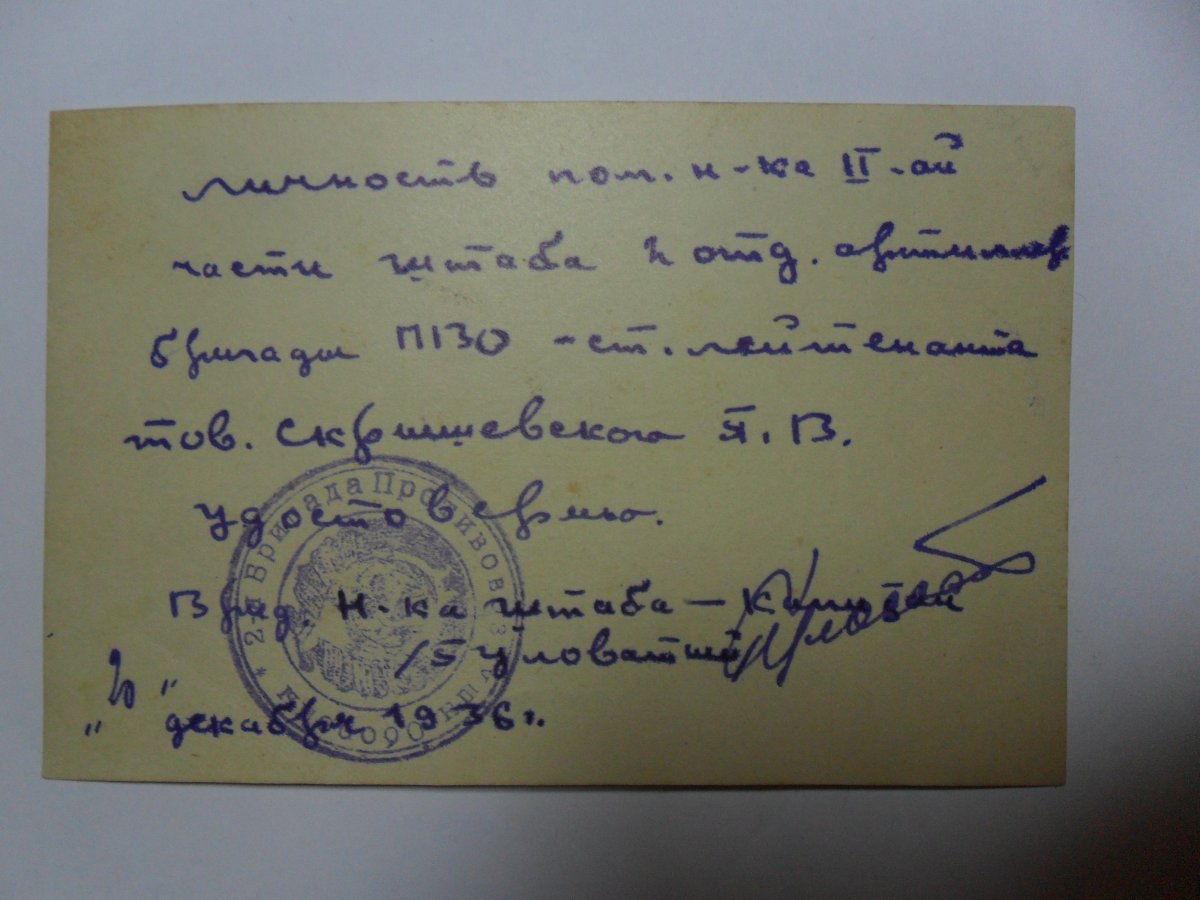 личность пом. н-ка II-ой
части штаба 2 отд. артиллер
бригады ПВО - ст. лейтенанта
тов. Скришевского Я. В.
удостоверяю.
Врид. н-ка штаба — Капитан
/Буловатский
" 20 "
декабря 1936 г.
2-я Бригада Противовоз Обороны